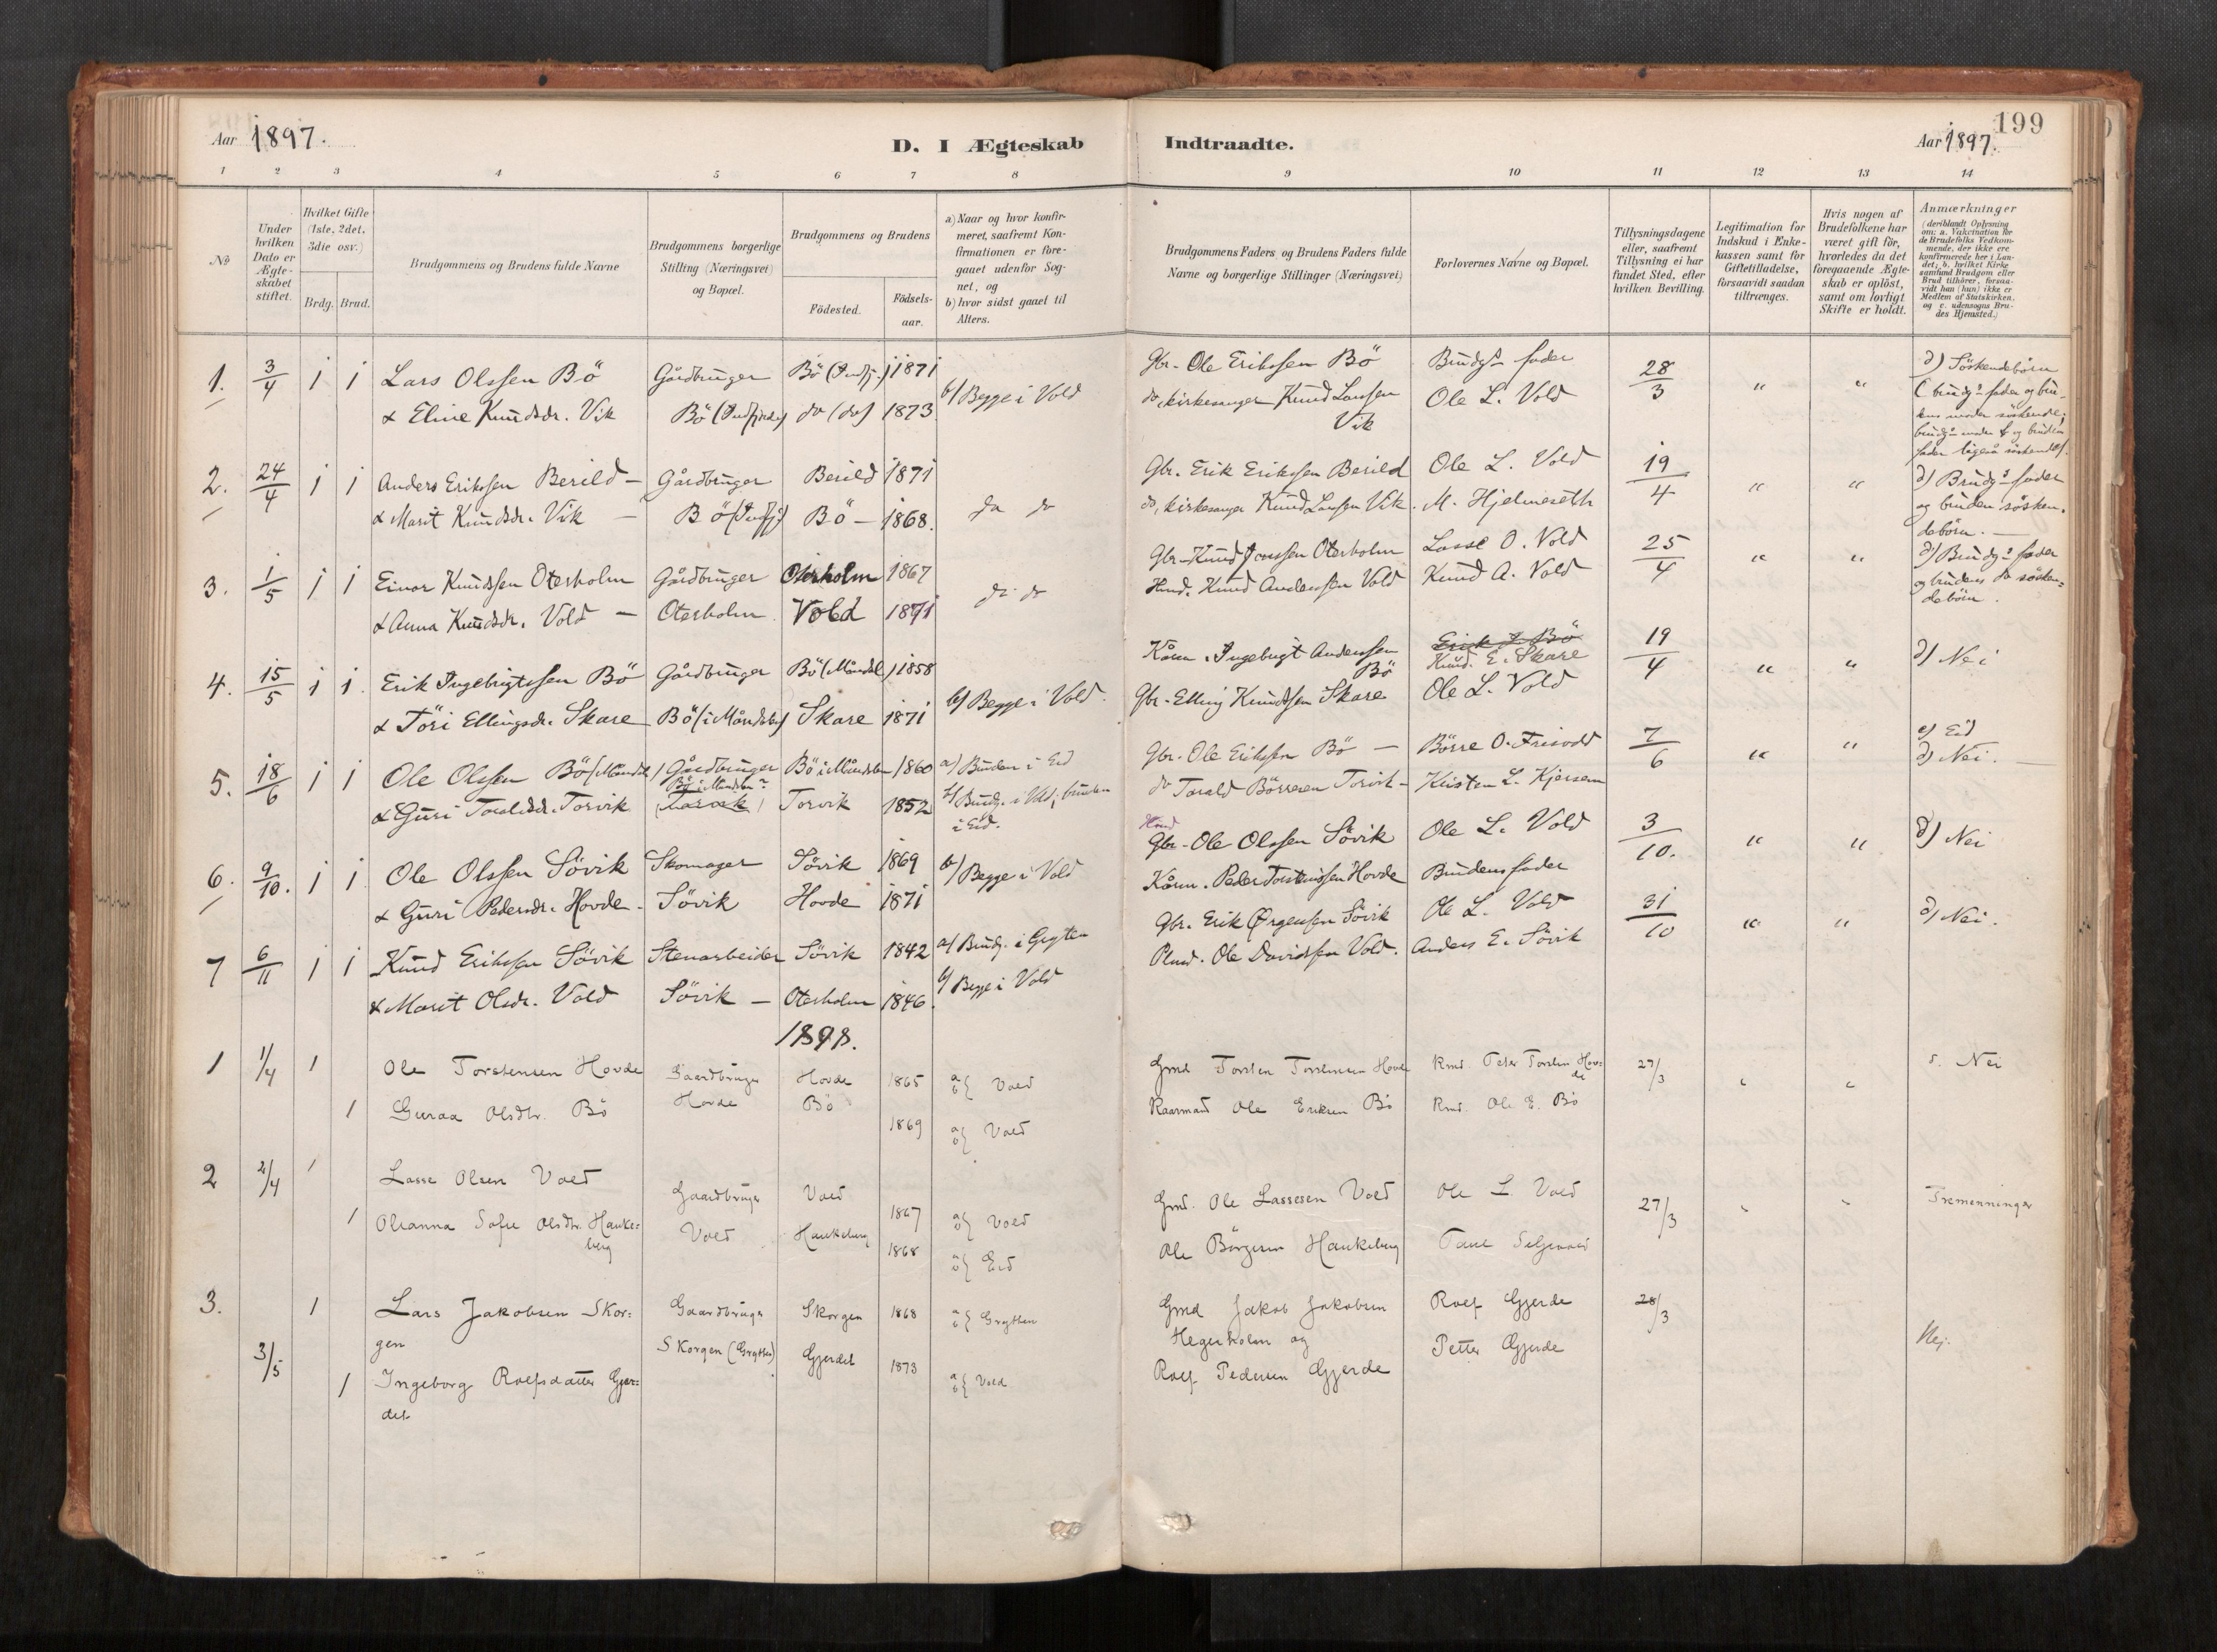 199
Aar 1897.
D. I Ægteskab Indtraadte.
Aar 1897.
1 2 3 4 5 6 7 8 9 10 11 12 13 14
No
Under hvilken Dato er Ægteskabet stiftet.
Hvilket Gifte (1ste, 2det, 3die osv.)
Brdg. Brud.
Brudgommens og Brudens fulde Navne
Brudgommens borgerlige Stilling (Næringsvei) og Bopæl.
Brudgommens og Brudens
Födested.
Födsels-aar.
a) Naar og hvor konfirmeret, saafremt Konfirmationen er foregaaet udenfor Sognet, og
b) hvor sidst gaaet til Alters.
Brudgommens Faders og Brudens Faders fulde Navne og borgerlige Stillinger (Næringsvei)
Forlovernes Navne og Bopæl.
Tillysningsdagene eller, saafremt Tillysning ei har fundet Sted, efter hvilken Bevilling.
Legitimation for Indskud i Enkekassen samt for Giftetilladelse, forsaavidt saadan tiltrænges.
Hvis nogen af Brudefolkene har været gift för, hvorledes da det foregaaende Ægteskab er oplöst, samt om lovligt Skifte er holdt.
Anmærkninger (deriblandt Oplysning om: a. Vakcination for de Brudefolks Vedkommende, der ikke ere konfirmerede her i Landet; b. hvilket Kirkesamfund Brudgom eller Brud tilhörer, forsaavidt han (hun) ikke er Medlem af Statskirken, og c. udensogns Brudes Hjemsted.)
1. 3/4 1 1 Lars Olssen Bö Gårdbruger Bö (Indfj.) 1871 b) Begge i Vold Gbr. Ole Erikssen Bö Brudgs fader 28/3 " " d) Söskendebörn
& Eline Knudsdr. Vik Bö (Indfjorden) do (do) 1873. do, kirkesanger Knud Larssen Vik Ole L. Vold (brudgs fader og brudens moder söskende;
2. 24/4 1 1 Anders Erikssen Berild — Gårdbruger Berild 1871 do do Gbr. Erik Erikssen Berild Ole L. Vold 19/4 " " d) Brudgs fader
& Marit Knudsdr. Vik — Bö (Indfj.) Bö — 1868. do, kirkesanger Knud Larssen Vik. M. Hjelmeseth og bruden söskendebörn. —
3. 1/5 1 1 Einar Knudssen Oterholm Gårdbruger Oterholm 1867 do do Gbr. Knud Jonssen Oterholm Lasse O. Vold 25/4 " " d) Brudgs fader
& Anna Knudsdr. Vold — Oterholm Vold 1871 Hmd. Knud Anderssen Vold Knud A. Vold og brudens do söskendebörn.
4. 15/5 1 1. Erik Ingebrigtssen Bö Gårdbruger Bö (Måndal) 1858 b) Begge i Vold. Kårm. Ingebrigt Anderssen Bö Knud. E. Skare 19/4 " " d) Nei
& Töri Ellingsdr. Skare Bö (i Måndalen) Skare 1871 Gbr. Elling Knudssen Skare Ole L. Vold
5. 18/6 1 1 Ole Olssen Bö (Måndal) Gårdbruger Bö i Måndalen 1860 a) Bruden i Eid Gbr. Ole Erikssen Bö — Börre O. Frisvold 7/6 " " c) Eid
& Guri Toraldsdr. Torvik Bö i Måndalen Torvik 1852 b) Brudg. i Vold; bruden i Eid. do Torald Börresen Torvik — Kristen L. Kjersem d) Nei.
6. 9/10. 1 1 Ole Olssen Sövik Skomager Sövik 1869 b) Begge i Vold Hmd Gbr. Ole Olssen Sövik Ole L. Vold 3/10. " " d) Nei
& Guri Pedersdr. Hovde. Sövik Hovde 1871 Kårm. Peder Torsteinssen Hovde Brudens fader
7 6/11 1 1 Knud Erikssen Sövik Stenarbeider Sövik 1842 a) Brudg. i Grytten Gbr. Erik Örgenssen Sövik Ole L. Vold 31/10 " " d) Nei.
& Marit Olsdr. Vold Sövik — Oterholm 1846. b) Begge i Vold Plmd. Ole Davidssen Vold. Anders E. Sövik
1898.
1 1/4 1 Ole Torstensen Hovde Gaardbruger Hovde 1865 a b } Vold Gmd Torsten Torstensen Hovde Kmd. Peter Torsten Hovde 27/3 " " d. Nei
1 Guraa Olsdtr. Bö Hovde Bö 1869 a b } Vold Kaarmand Ole Eriksen Bö Kmd. Ole E. Bö
2 2/4 1 Lasse Olsen Vold Gaardbruger Vold 1867 a b } Vold Gmd. Ole Lassesen Vold Ole L. Vold 27/3 " " Tremenninger
1 Oleanna Sofie Olsdtr. Haukeberg Vold Haukeberg 1868 a b } Eid Ole Börgesen Haukeberg
3. 3/5 1 Lars Jakobsen Skorgen Gaardbruger Skorgen 1868 a b } Grytten Gmd Jakob Jakobsen Hegerholm og Rolf Gjerde 28/3 Nei.
1 Ingeborg Rolfsdatter Gjerdet Skorgen (Grytten) Gjerdet 1873 a b } Vold Rolf Pedersen Gjerde Petter Gjerde